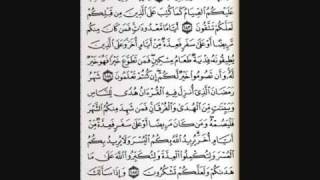 عَلَيْكُمُ الصِّيَامُ كَمَا كُتِبَ عَلَى الَّذِينَ مِن قَبْلِكُمْ
لَعَلَّكُمْ تَتَّقُونَ ﴿١٨٣﴾ أَيَّامًا مَّعْدُودَاتٍ فَمَن كَانَ مِنكُم
مَّرِيضًا أَوْ عَلَىٰ سَفَرٍ فَعِدَّةٌ مِّنْ أَيَّامٍ أُخَرَ وَعَلَى الَّذِينَ
يُطِيقُونَهُ فِدْيَةٌ طَعَامُ مِسْكِينٍ فَمَن تَطَوَّعَ خَيْرًا فَهُوَ خَيْرٌ
لَّهُ وَأَن تَصُومُوا خَيْرٌ لَّكُمْ إِن كُنتُمْ تَعْلَمُونَ ﴿١٨٤﴾ شَهْرُ
رَمَضَانَ الَّذِي أُنزِلَ فِيهِ الْقُرْآنُ هُدًى لِّلنَّاسِ
وَبَيِّنَاتٍ مِّنَ الْهُدَىٰ وَالْفُرْقَانِ فَمَن شَهِدَ مِنكُمُ الشَّهْرَ
فَلْيَصُمْهُ وَمَن كَانَ مَرِيضًا أَوْ عَلَىٰ سَفَرٍ فَعِدَّةٌ مِّنْ
أَيَّامٍ أُخَرَ يُرِيدُ اللَّهُ بِكُمُ الْيُسْرَ وَلَا يُرِيدُ بِكُمُ
الْعُسْرَ وَلِتُكْمِلُوا الْعِدَّةَ وَلِتُكَبِّرُوا اللَّهَ عَلَىٰ مَا
هَدَاكُمْ وَلَعَلَّكُمْ تَشْكُرُونَ ﴿١٨٥﴾ وَإِذَا سَأَلَكَ